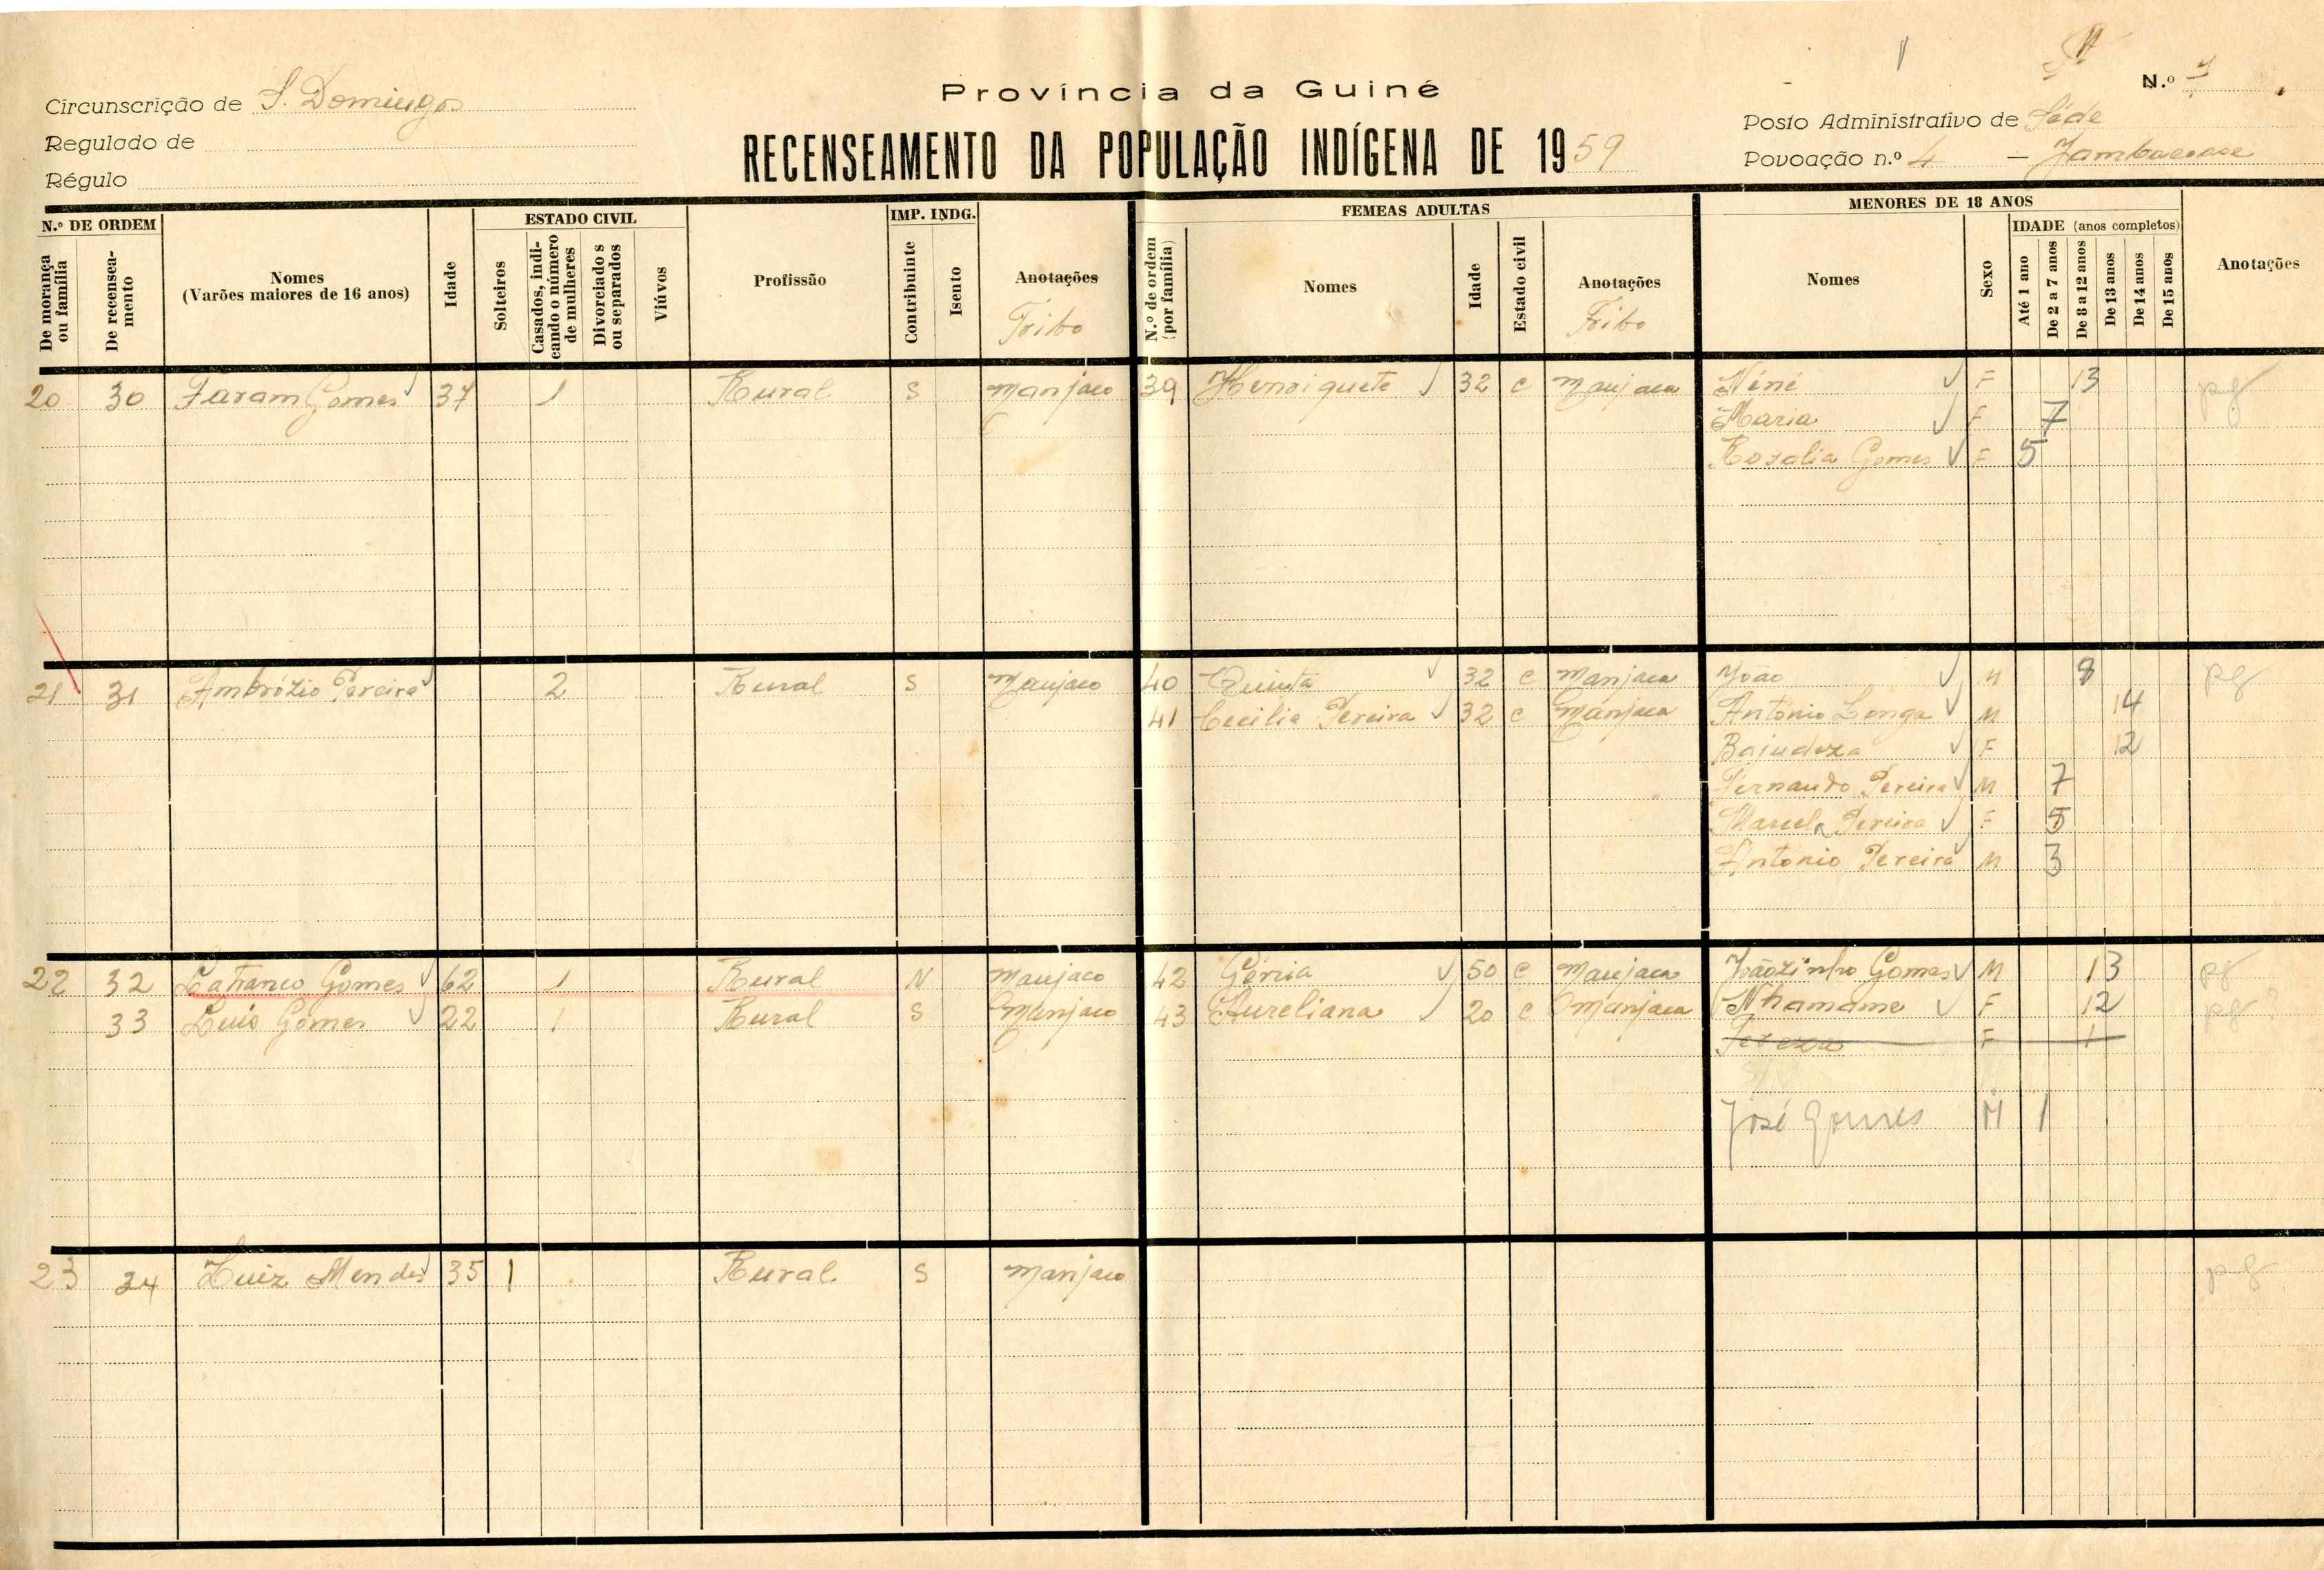 Província da Guiné
N.º
Circunscrição de S. Domingos
Posto Administrativo de Séde
Regulado de
RECENSEAMENTO DA POPULAÇÃO INDÍGENA DE 1959
Povoação n.º 4 —
Régulo
N.º DE ORDEM
De morança ou família
De recenseamento
Nomes
(Varões maiores de 16 anos)
Idade
ESTADO CIVIL
Solteiros
Casados, indicando o número de mulheres
Divorciados ou separados
Viúvos
Profissão
IMP. INDG.
Contribuinte
Isento
Anotações
Tribo
FEMEAS ADULTAS
N.º de ordem (por família)
Nomes
Idade
Estado civil
Anotações
Tribo
MENORES DE 18 ANOS
Nomes
Sexo
IDADE (anos completos)
Até 1 ano
De 2 a 7 anos
De 8 a 12 anos
De 13 anos
De 14 anos
De 15 anos
Anotações
20 30 Faram Gomes 37 1 Rural S Manjaco 39 Henriqueta 32 C Manjaca Néné F 13 pg
Maria F 7
Rosalia Gomes F 5
21 31 Ambrózio Pereira 2 Rural S Manjaco 40 Quinta 32 C Manjaca João M pg
41 Cecilia Pereira 32 C Manjaca António Longa M 14
Bajudeza F 12
Fernando Pereira M 7
Marcela Pereira F 5
António Pereira M 3
22 32 Lafranco Gomes 62 1 Rural N Manjaco 42 50 C Manjaca Joãozinho Gomes M 13 pg
33 Luís Gomes 22 1 Rural S Manjaco 43 Aureliana 20 C Manjaca Nhamame F 12 pg ?
Tereza F 1
José Gomes M 1
23 34 Luiz Mendes 35 1 Rural S Manjaco pg